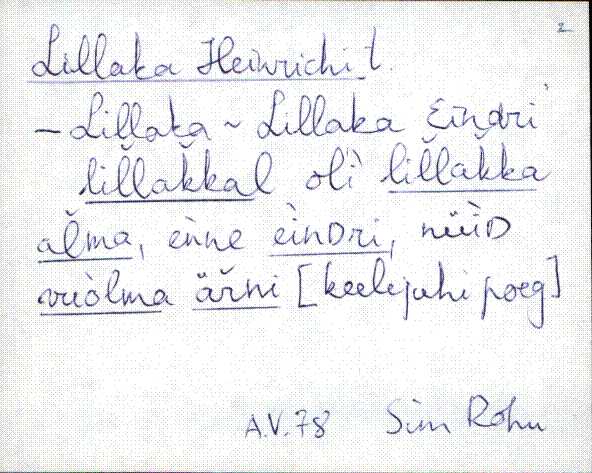 2
Lillaka Heinrichi t.
– Lillaka ~ Lillaka Eindri
lil̆lak̆kal oĺì lil̆lak̆ka
al̆ma, ènne èinDri, nüìD
vuòlma är̆ni [keelejuhi poeg]
A.V. 78 Sim Rohu